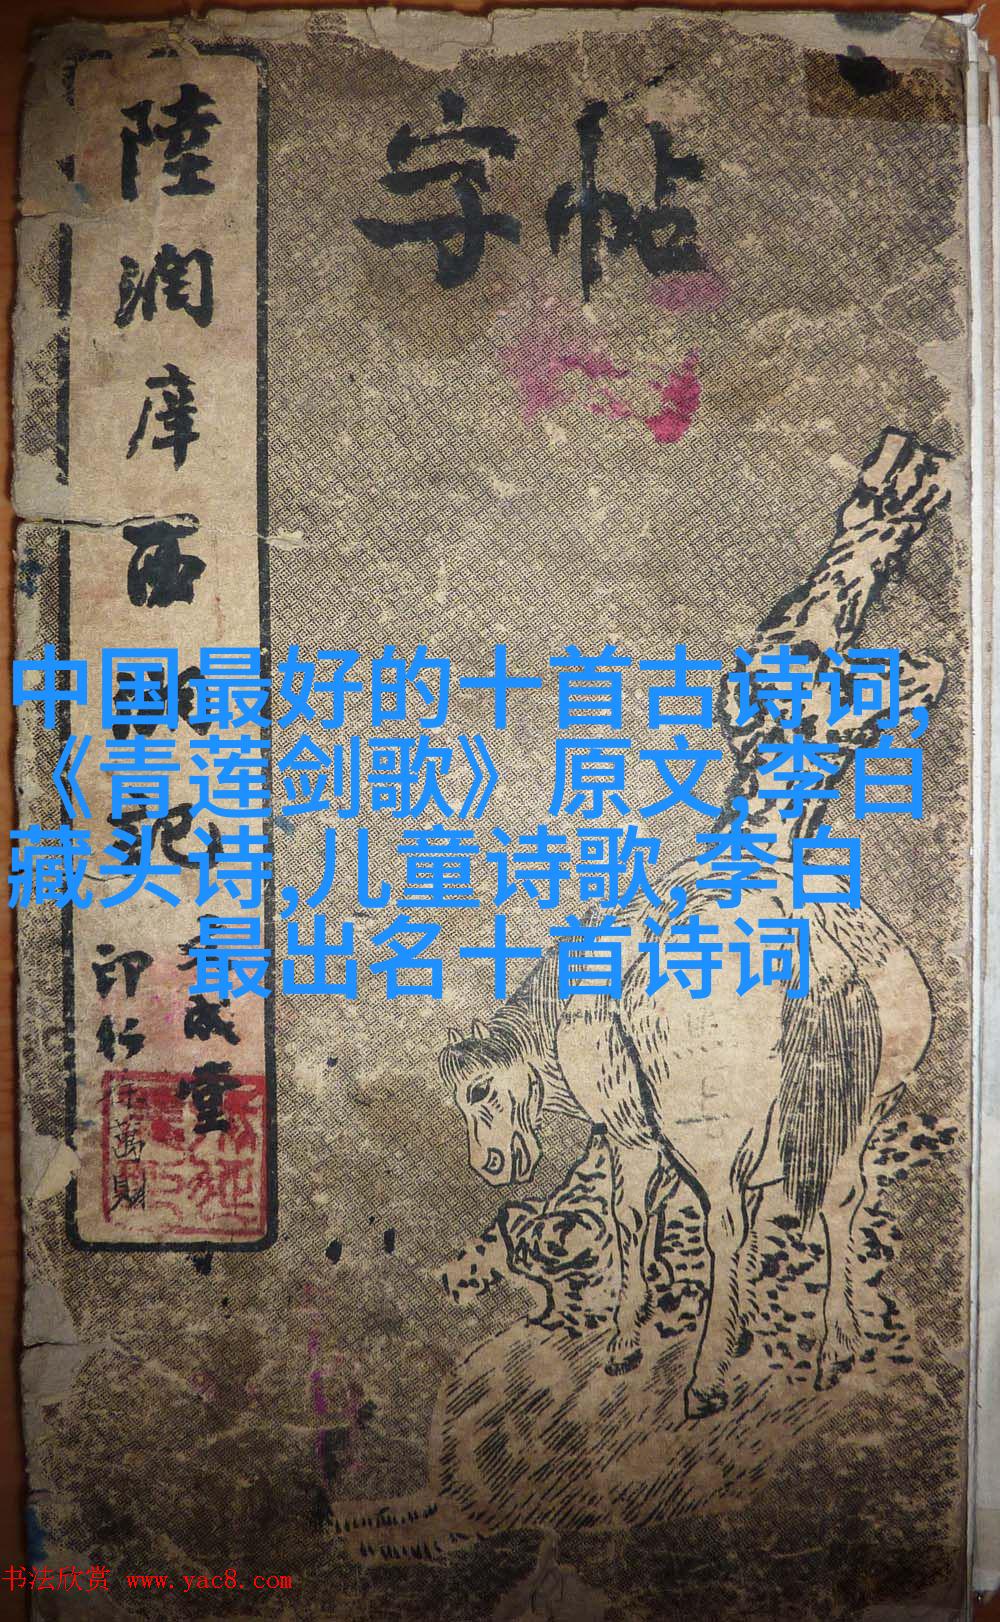 字帖
陸潤庠西
印行
成堂
萬財
中国最好的十首古诗词,
《青莲剑歌》原文,李白
藏头诗,儿童诗歌,李白
最出名十首诗词
书法欣赏 www.yac8.com